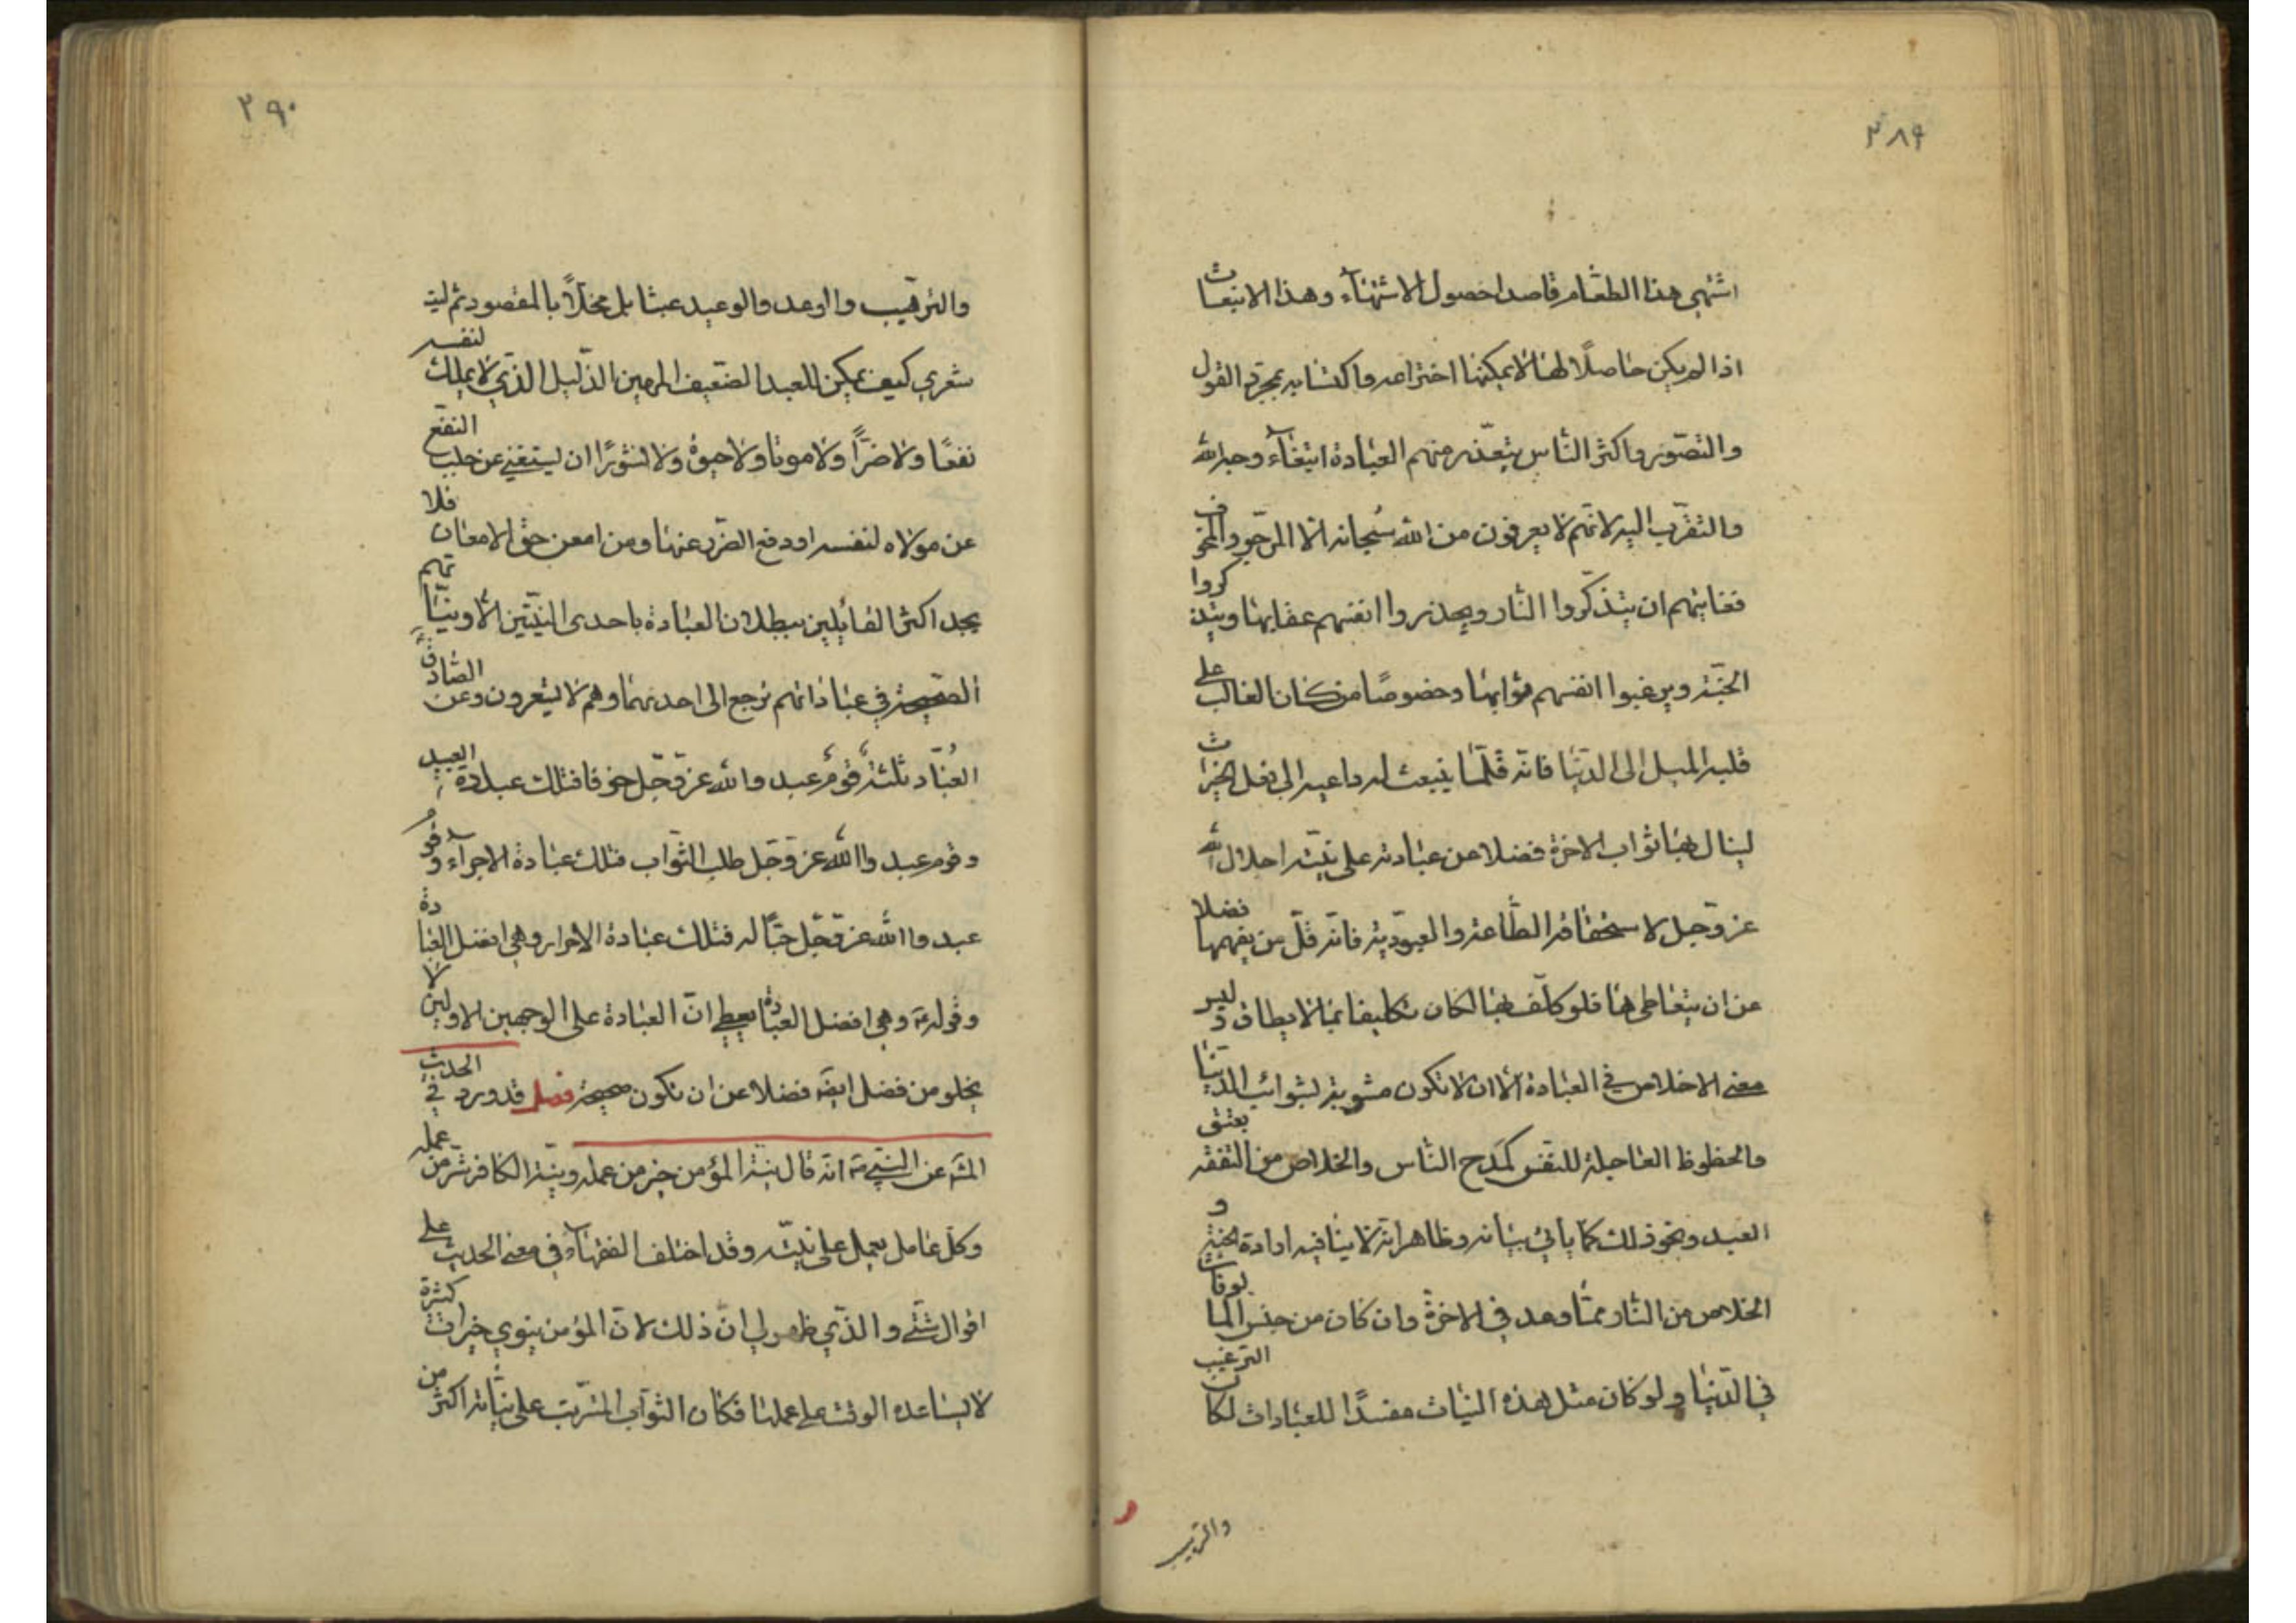 ٣٨٩
اشتهي هذا الطعام قاصدا حصول الاشتهاء وهذا الانبعاث
اذا لم يكن حاصلًا لها لا يمكنها اختراعه واكتسابه بمجرد القول
والتصوّر واكثر النّاس يتعذّر منهم العبادة ابتغاء وجه الله
والتقرّب اليه لانّهم لا يعرفون من الله سبحانه الّا المرجوّ والمخوف
فغايتهم ان يتذكّروا النّار ويحذروا انفسهم عقابها ويتذكروا
الجنّة ويرغبوا انفسهم ثوابها وخصوصًا من كان الغالب على
قلبه الميل الى الدّنيا فانّه قلّما ينبعث له داعية الى فعل الخيرات
لينال بها ثواب الاخرة فضلا عن عبادته على نيّة اجلال الله
عزّ وجلّ لاستحقاقه الطّاعة والعبوديّة فانّه قلّ من يفهمها فضلا
عن ان يتعاطى ها فلو كلّف بها لكان تكليفا بما لا يطاق وليس
معنى الاخلاص في العبادة الّا ان لا تكون مشوبة بشوائب الدنيا
والحظوظ العاجلة للنفس كمدح النّاس والخلاص من النفقة بعتق
العبد ونحو ذلك كما يأتي بيانه وظاهر انّه لا ينافيه ارادة الجنّة و
الخلاص من النّار ممّا وعد في الاخرة وان كان من جنس المالوفات
في الدّنيا ولو كان مثل هذه النيّات مفسدًا للعبادات لكان الترغيب
والترهيب
٢٩٠
والترهيب والوعد والوعيد عبثا بل مخلّاً بالمقصود ثم ليت
شعري كيف يمكن للعبد الضّعيف المهين الذّليل الذّي لا يملك لنفسه
نفعًا ولا ضرًّا ولا موتا ولا حيوة ولا نشورًا ان يستغني عن جلب النفع
عن مولاه لنفسه او دفع الضّرر عنها ومن امعن حق الامعان فلا
يجد اكثر القائلين ببطلان العبادة باحدى النيّتين الّا ونيّاتهم
الصّحيحة في عباداتهم ترجع الى احديهما وهم لا يشعرون وعن الصّادقؑ
العُبّاد ثلثة قوم عبدوا الله عزّ وجلّ خوفا فتلك عبادة العبيد
وقوم عبدوا الله عزّ وجلّ طلب الثّواب فتلك عبادة الاجراء وقوم
عبدوا الله عزّ وجلّ حبًّا له فتلك عبادة الاحرار وهي افضل العبادة
وقوله ع وهي افضل العبادة يعطي انّ العبادة على الوجهين الاولين لا
يخلو من فضل ايضا فضلا عن ان تكون صحيحة فصل قد ورد في الحديث
المش عن النبي ص انّه قال نيّة المؤمن خير من عمله ونيّة الكافر شرّ من عمله
وكلّ عامل يعمل على نيّته وقد اختلف الفقهاء في معنى الحديث على
اقوال شتّى والذّي ظهر لي انّ ذلك لانّ المؤمن ينوي خيرات كثيرة
لا يساعده الوقت على عملها فكان الثواب المترتب على نيّاته اكثر من